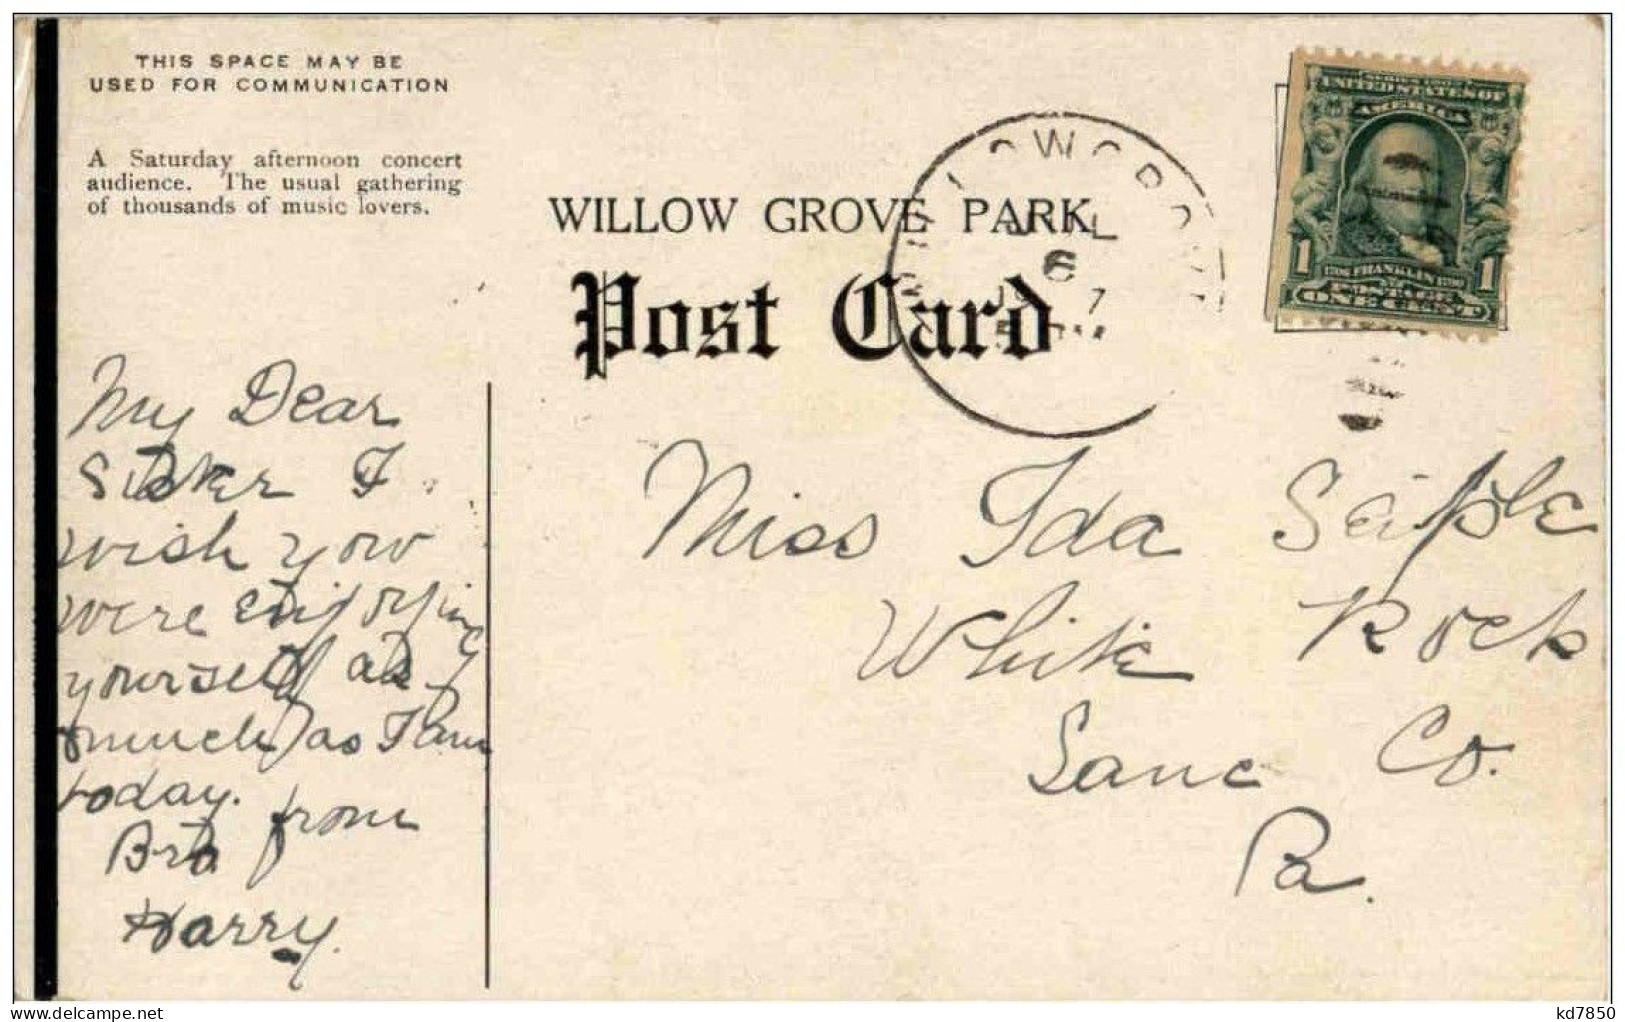 THIS SPACE MAY BE
USED FOR COMMUNICATION
A Saturday afternoon concert
audience. The usual gathering
of thousands of music lovers.
WILLOW GROVE PARK
Post Card
JUL
6
7
SERIES 1902
UNITED STATES OF
AMERICA
1 1706 FRANKLIN 1790 1
ONE CENT
My Dear
Sister I
wish you
were enjoying
yourself as
much as I am
today.
from
Bro
Harry.
Miss Ida Seiple
White Rock
Lanc Co.
Pa.
kd7850